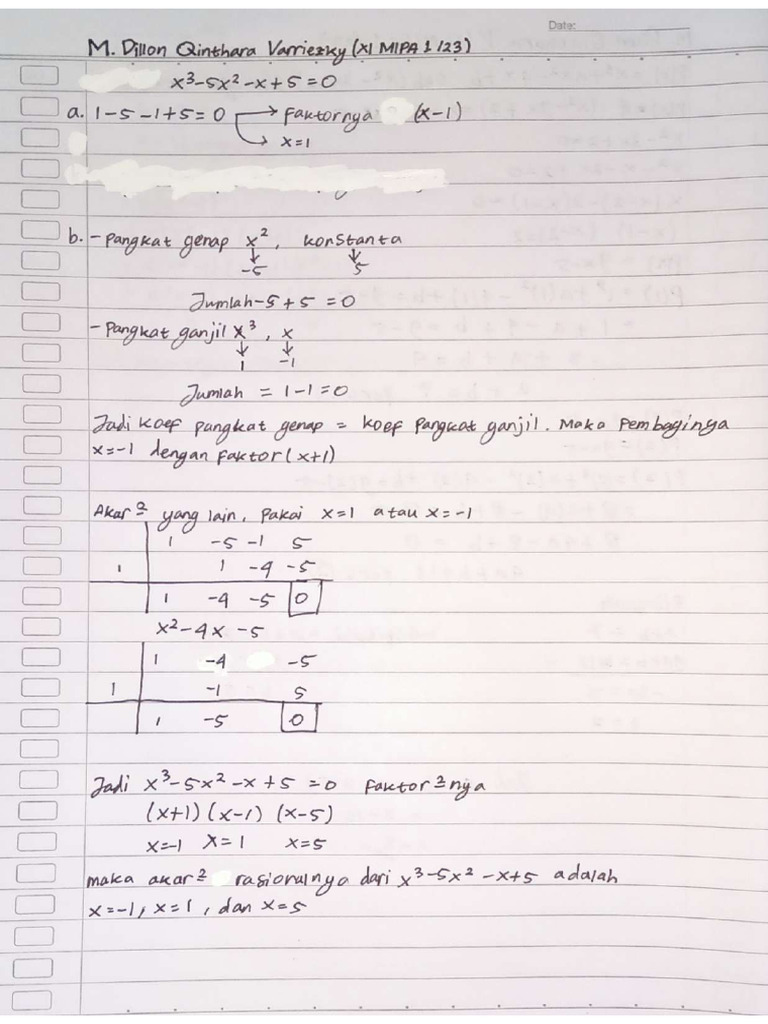 Date:
M. Dillon Qinthara Varriezky (XI MIPA 1 /23)
x³-5x²-x+5=0
a. 1-5-1+5=0 → Faktornya (x-1)
→ x=1
b. - Pangkat genap x², konstanta
↓ ↓
-5 5
Jumlah -5+5=0
- Pangkat ganjil x³, x
↓ ↓
1 -1
Jumlah = 1-1=0
Jadi koef pangkat genap = koef pangkat ganjil. Maka Pembaginya
x=-1 dengan faktor (x+1)
Akar² yang lain, pakai x=1 atau x=-1
1 -5 -1 5
1 1 -4 -5
1 -4 -5 0
x²-4x-5
1 -4 -5
1 -1 5
1 -5 0
Jadi x³-5x²-x+5=0 Faktor²nya
(x+1)(x-1)(x-5)
x=-1 x=1 x=5
maka akar² rasionalnya dari x³-5x²-x+5 adalah
x=-1, x=1, dan x=5